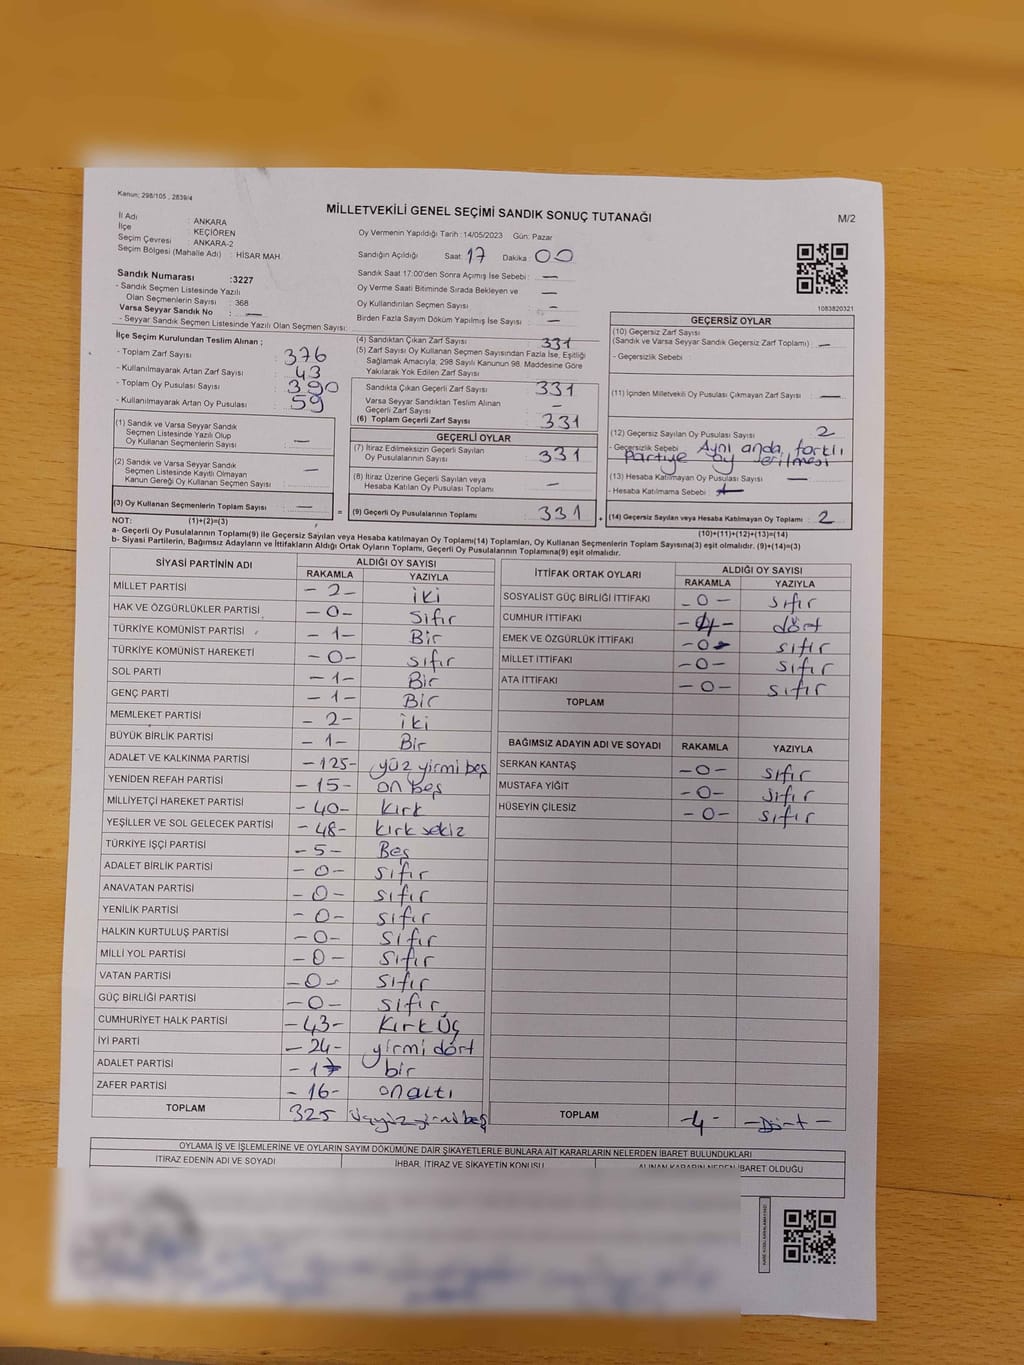 Kanun: 298/105 , 2839/4
MİLLETVEKİLİ GENEL SEÇİMİ SANDIK SONUÇ TUTANAĞI
M/2
İl Adı : ANKARA
İlçe : KEÇİÖREN
Seçim Çevresi : ANKARA-2
Seçim Bölgesi (Mahalle Adı) : HİSAR MAH.
Oy Vermenin Yapıldığı Tarih : 14/05/2023 Gün: Pazar
Sandığın Açıldığı Saat: 17 Dakika : 00
Sandık Saat 17:00'den Sonra Açımış İse Sebebi : —
Oy Verme Saati Bitiminde Sırada Bekleyen ve —
Oy Kullandırılan Seçmen Sayısı : —
Birden Fazla Sayım Döküm Yapılmış İse Sayısı : —
Sandık Numarası :3227
- Sandık Seçmen Listesinde Yazılı
Olan Seçmenlerin Sayısı : 368
Varsa Seyyar Sandık No : —
- Seyyar Sandık Seçmen Listesinde Yazılı Olan Seçmen Sayısı:
1083820321
İlçe Seçim Kurulundan Teslim Alınan ;
- Toplam Zarf Sayısı : 376
- Kullanılmayarak Artan Zarf Sayısı : 43
- Toplam Oy Pusulası Sayısı : 390
- Kullanılmayarak Artan Oy Pusulası : 59
(1) Sandık ve Varsa Seyyar Sandık
Seçmen Listesinde Yazılı Olup
Oy Kullanan Seçmenlerin Sayısı : —
(2) Sandık ve Varsa Seyyar Sandık
Seçmen Listesinde Kayıtlı Olmayan
Kanun Gereği Oy Kullanan Seçmen Sayısı : —
(3) Oy Kullanan Seçmenlerin Toplam Sayısı : —
(4) Sandıktan Çıkan Zarf Sayısı : 331
(5) Zarf Sayısı Oy Kullanan Seçmen Sayısından Fazla İse, Eşitliği
Sağlamak Amacıyla; 298 Sayılı Kanunun 98. Maddesine Göre
Yakılarak Yok Edilen Zarf Sayısı :
Sandıkta Çıkan Geçerli Zarf Sayısı : 331
Varsa Seyyar Sandıktan Teslim Alınan
Geçerli Zarf Sayısı : —
(6) Toplam Geçerli Zarf Sayısı : 331
GEÇERLİ OYLAR
(7) İtiraz Edilmeksizin Geçerli Sayılan
Oy Pusulalarının Sayısı : 331
(8) İtiraz Üzerine Geçerli Sayılan veya
Hesaba Katılan Oy Pusulası Toplamı : —
= (9) Geçerli Oy Pusulalarının Toplamı : 331
GEÇERSİZ OYLAR
(10) Geçersiz Zarf Sayısı
(Sandık ve Varsa Seyyar Sandık Geçersiz Zarf Toplamı) : —
- Geçersizlik Sebebi :
(11) İçinden Milletvekili Oy Pusulası Çıkmayan Zarf Sayısı : —
(12) Geçersiz Sayılan Oy Pusulası Sayısı : 2
- Geçersizlik Sebebi : Aynı anda farklı
partiye oy verilmesi
(13) Hesaba Katılmayan Oy Pusulası Sayısı : —
- Hesaba Katılmama Sebebi : —
(14) Geçersiz Sayılan veya Hesaba Katılmayan Oy Toplamı : 2
NOT: (1)+(2)=(3)
(10)+(11)+(12)+(13)=(14)
a- Geçerli Oy Pusulalarının Toplamı(9) ile Geçersiz Sayılan veya Hesaba katılmayan Oy Toplamı(14) Toplamları, Oy Kullanan Seçmenlerin Toplam Sayısına(3) eşit olmalıdır. (9)+(14)=(3)
b- Siyasi Partilerin, Bağımsız Adayların ve İttifakların Aldığı Ortak Oyların Toplamı, Geçerli Oy Pusulalarının Toplamına(9) eşit olmalıdır.
SİYASİ PARTİNİN ADI ALDIĞI OY SAYISI
RAKAMLA YAZIYLA
MİLLET PARTİSİ - 2 - iki
HAK VE ÖZGÜRLÜKLER PARTİSİ - 0 - Sıfır
TÜRKİYE KOMÜNİST PARTİSİ - 1 - Bir
TÜRKİYE KOMÜNİST HAREKETİ - 0 - sıfır
SOL PARTİ - 1 - Bir
GENÇ PARTİ - 1 - Bir
MEMLEKET PARTİSİ - 2 - iki
BÜYÜK BİRLİK PARTİSİ - 1 - Bir
ADALET VE KALKINMA PARTİSİ - 125 - yüz yirmi beş
YENİDEN REFAH PARTİSİ - 15 - on beş
MİLLİYETÇİ HAREKET PARTİSİ - 40 - Kırk
YEŞİLLER VE SOL GELECEK PARTİSİ - 48 - kırk sekiz
TÜRKİYE İŞÇİ PARTİSİ - 5 - Beş
ADALET BİRLİK PARTİSİ - 0 - sıfır
ANAVATAN PARTİSİ - 0 - sıfır
YENİLİK PARTİSİ - 0 - sıfır
HALKIN KURTULUŞ PARTİSİ - 0 - sıfır
MİLLİ YOL PARTİSİ - 0 - sıfır
VATAN PARTİSİ - 0 - sıfır
GÜÇ BİRLİĞİ PARTİSİ - 0 - sıfır
CUMHURİYET HALK PARTİSİ - 43 - Kırk Üç
İYİ PARTİ - 24 - yirmi dört
ADALET PARTİSİ - 1 - bir
ZAFER PARTİSİ - 16 - on altı
TOPLAM 325 üçyüz yirmi beş
İTTİFAK ORTAK OYLARI ALDIĞI OY SAYISI
RAKAMLA YAZIYLA
SOSYALİST GÜÇ BİRLİĞİ İTTİFAKI - 0 - sıfır
CUMHUR İTTİFAKI - 4 - dört
EMEK VE ÖZGÜRLÜK İTTİFAKI - 0 - sıfır
MİLLET İTTİFAKI - 0 - sıfır
ATA İTTİFAKI - 0 - sıfır
TOPLAM
BAĞIMSIZ ADAYIN ADI VE SOYADI RAKAMLA YAZIYLA
SERKAN KANTAŞ - 0 - sıfır
MUSTAFA YİĞİT - 0 - sıfır
HÜSEYİN ÇİLESİZ - 0 - sıfır
TOPLAM - 4 - - Dört -
OYLAMA İŞ VE İŞLEMLERİNE VE OYLARIN SAYIM DÖKÜMÜNE DAİR ŞİKAYETLERLE BUNLARA AİT KARARLARIN NELERDEN İBARET BULUNDUKLARI
İTİRAZ EDENİN ADI VE SOYADI İHBAR, İTİRAZ VE ŞİKAYETİN KONUSU ALINAN KARARIN NEDEN İBARET OLDUĞU